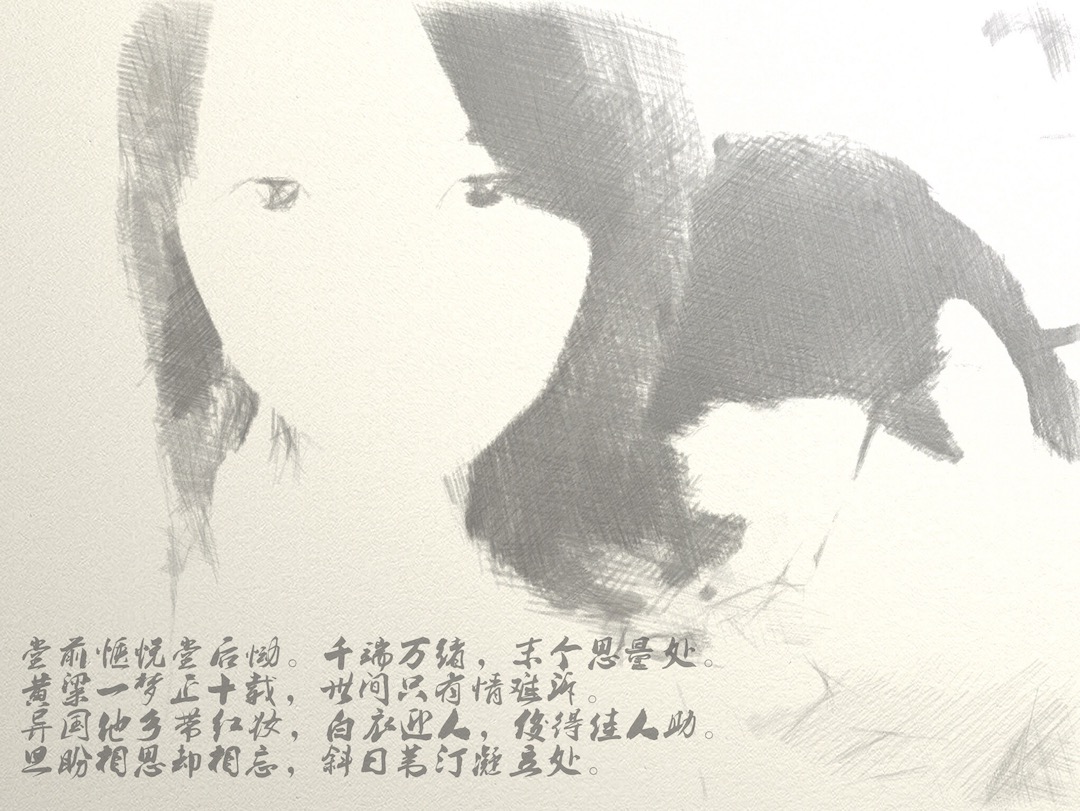 堂前惬悦堂后恸。千端万绪，末个思量处。
黄梁一梦正十载，世间只有情难诉。
异国他乡带红妆，白衣迎人，后得佳人助。
旦盼相思却相忘，斜日芜汀凝立处。